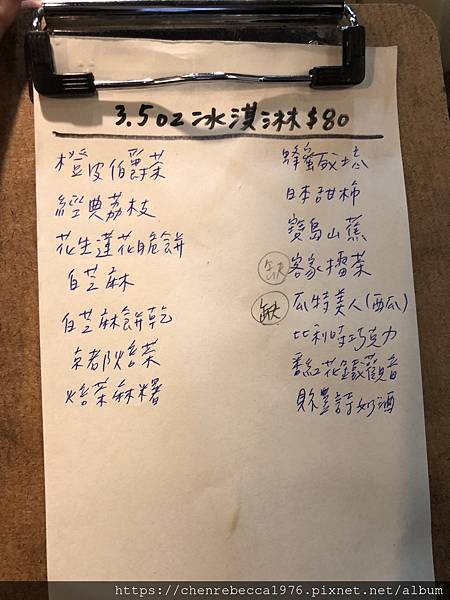 3.5oz 冰淇淋 $80
橙皮伯爵茶
經典荔枝
花生蓮花脆餅
白芝麻
白芝麻餅乾
京都炊焙茶
焙茶麻糬
蜂蜜
日本甜柿
寶島山蕉
缺 客家擂茶
缺 瓜特美人(西瓜)
比利時巧克力
番紅花鐵觀音
貝禮詩奶酒
https://chenrebecca1976.pixnet.net/album